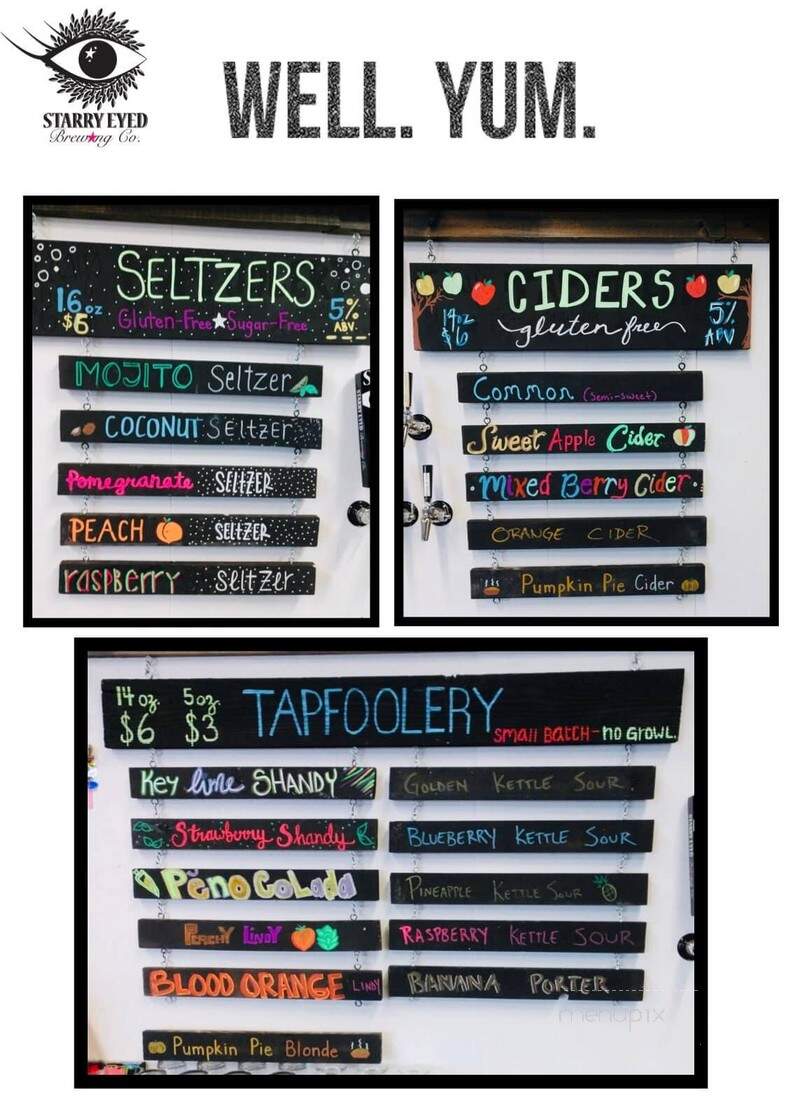 STARRY EYED
Brewing Co.
WELL. YUM.
SELTZERS
16oz
$6
Gluten-Free Sugar-Free
5%
ABV
MOJITO Seltzer
COCONUT Seltzer
Pomegranate SELTZER
PEACH SELTZER
raspberry seltzer
CIDERS
14oz
$6
gluten free
5%
ABV
Common (semi-sweet)
Sweet Apple Cider
Mixed Berry Cider
ORANGE CIDER
Pumpkin Pie Cider
14 oz.
$6
5 oz.
$3
TAPFOOLERY
small BatCH - no GROWL.
Key lime SHANDY
Strawberry Shandy
Peno CoLada
PEACHY LINDY
BLOOD ORANGE LINDY
Pumpkin Pie Blonde
GOLDEN KETTLE SOUR
BLUEBERRY KETTLE SOUR
PINEAPPLE KETTLE SOUR
RASPBERRY KETTLE SOUR
BANANA PORTER
menupix